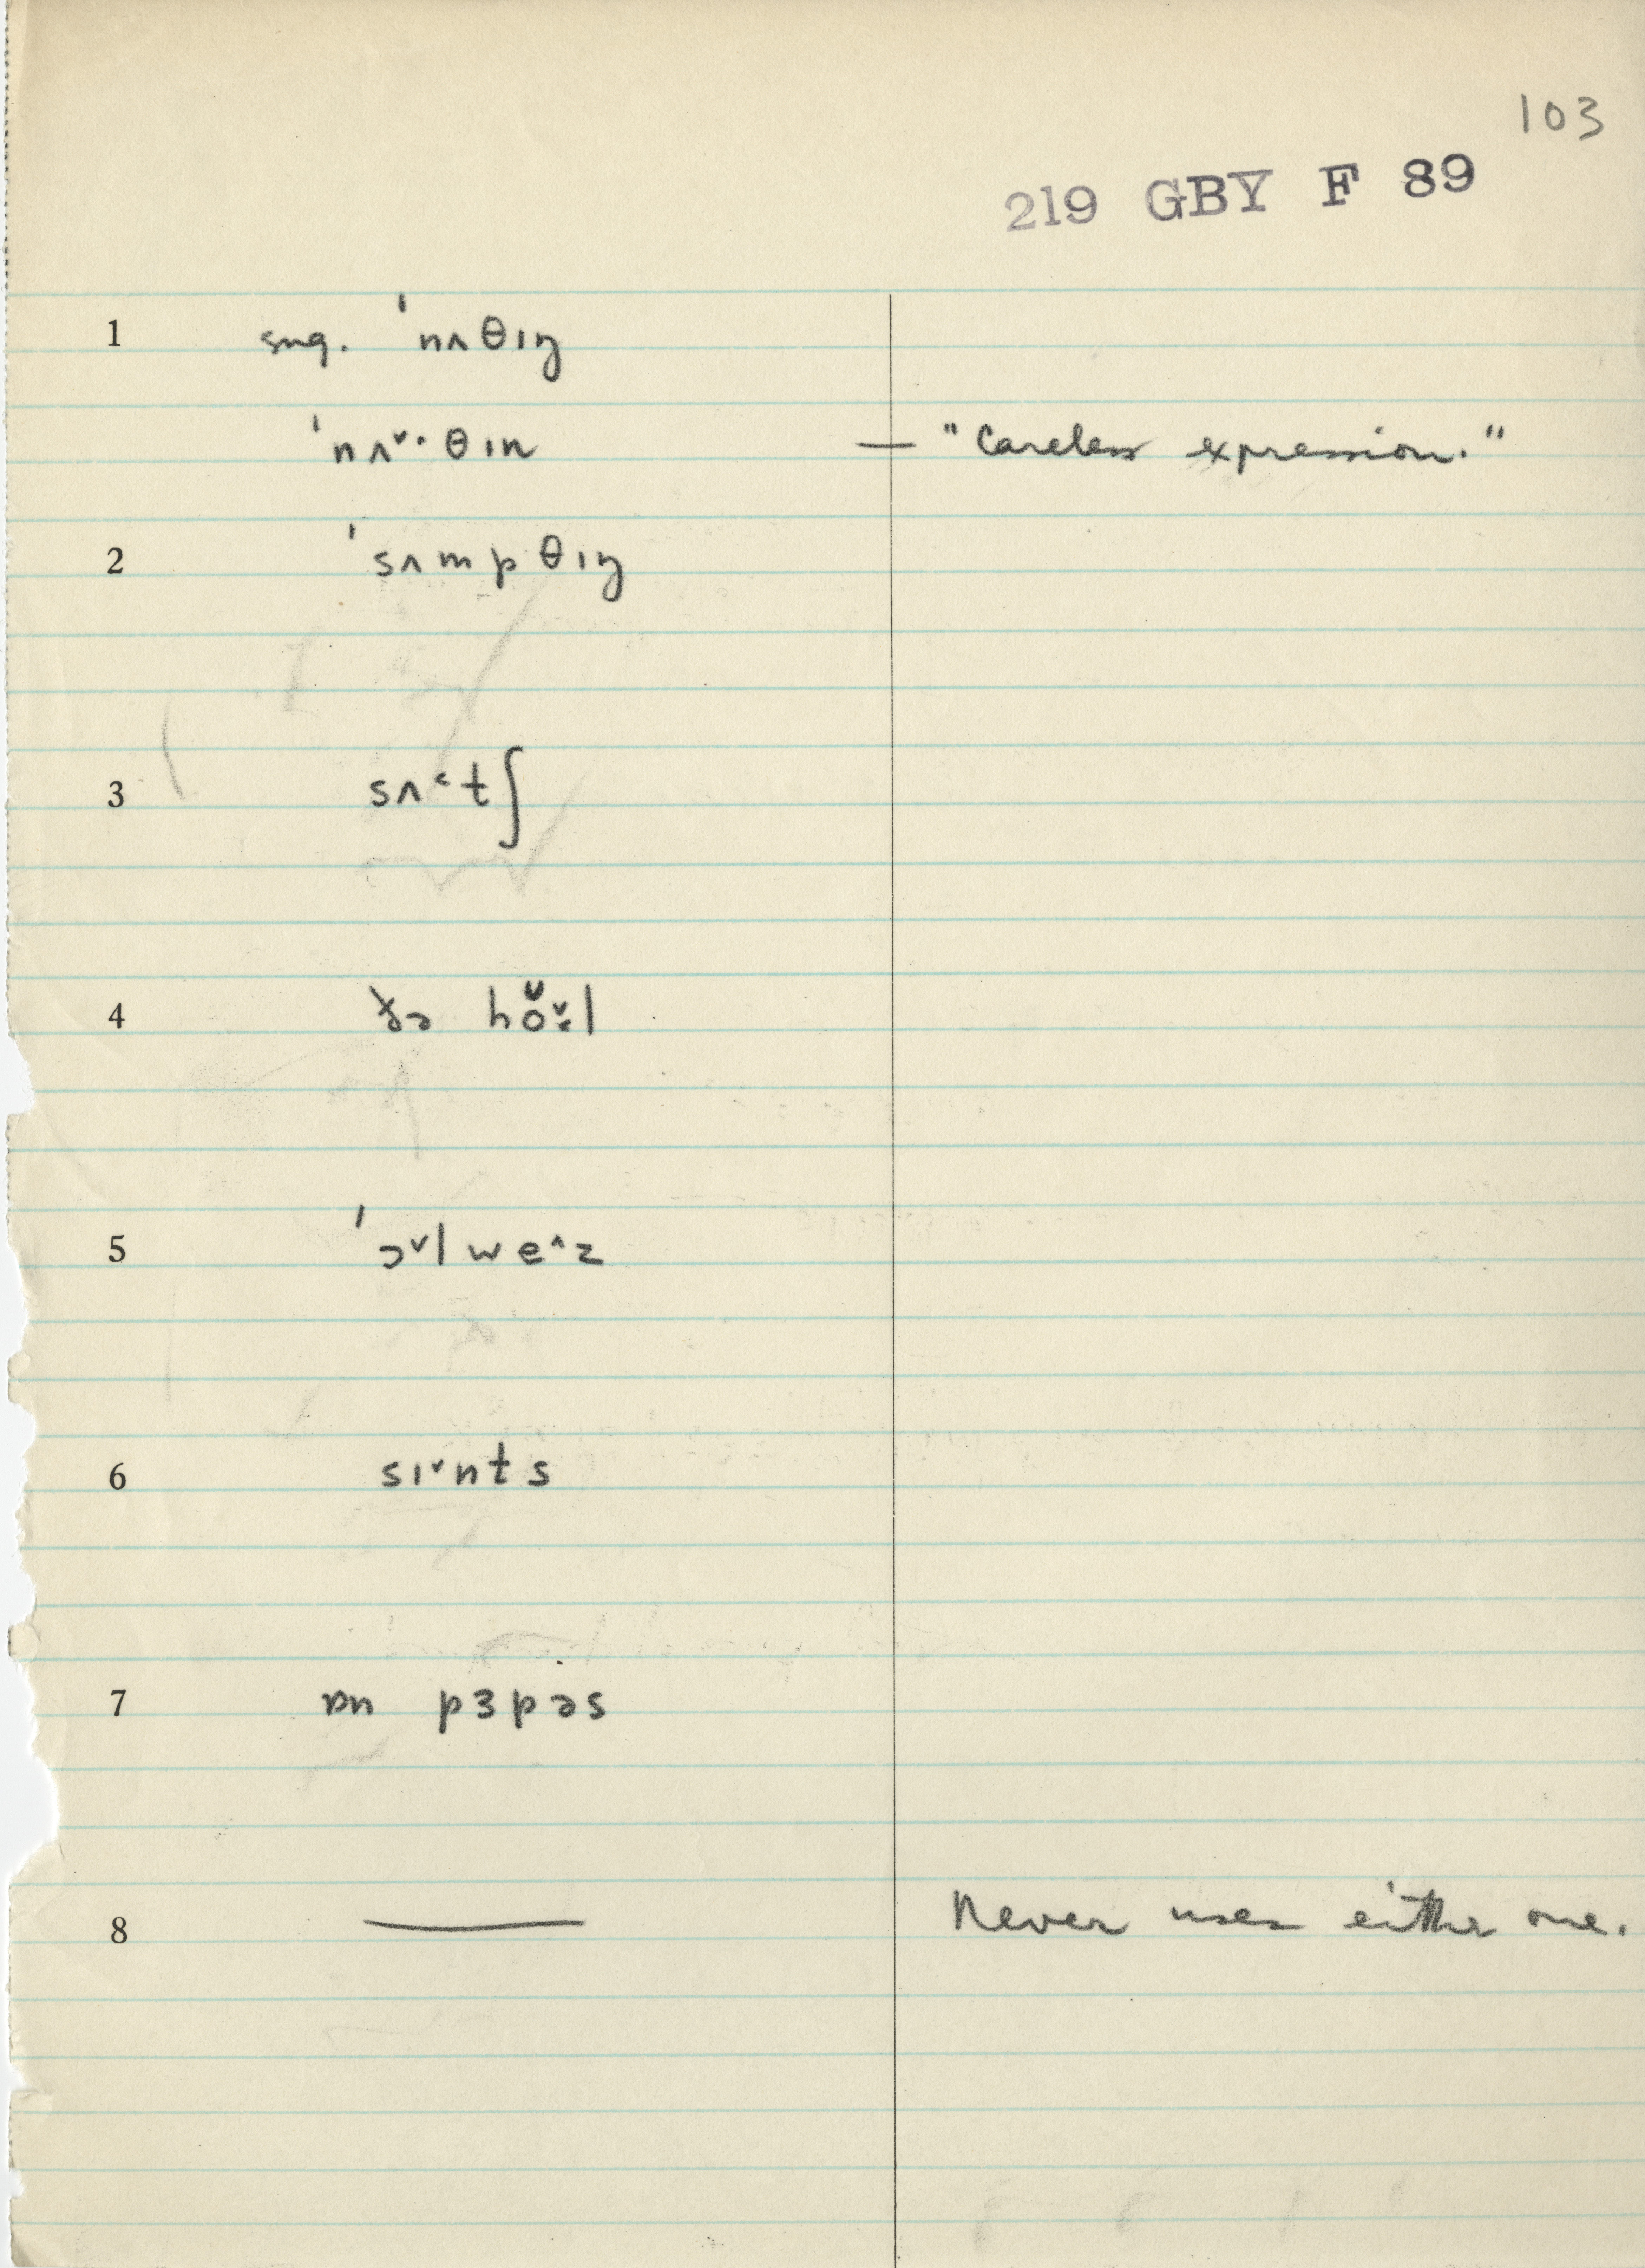 103
219 GBY F 89
1 sug. ˈnʌθɪŋ
ˈnʌˇ·θɪn — "Careless expression."
2 ˈsʌmpθɪŋ
3 sʌ˂tʃ
4 ðə hŏˇ·l
5 ˈɔˇlweˆz
6 sɪˇnts
7 ɒn pɜpəs
8 — Never uses either one.